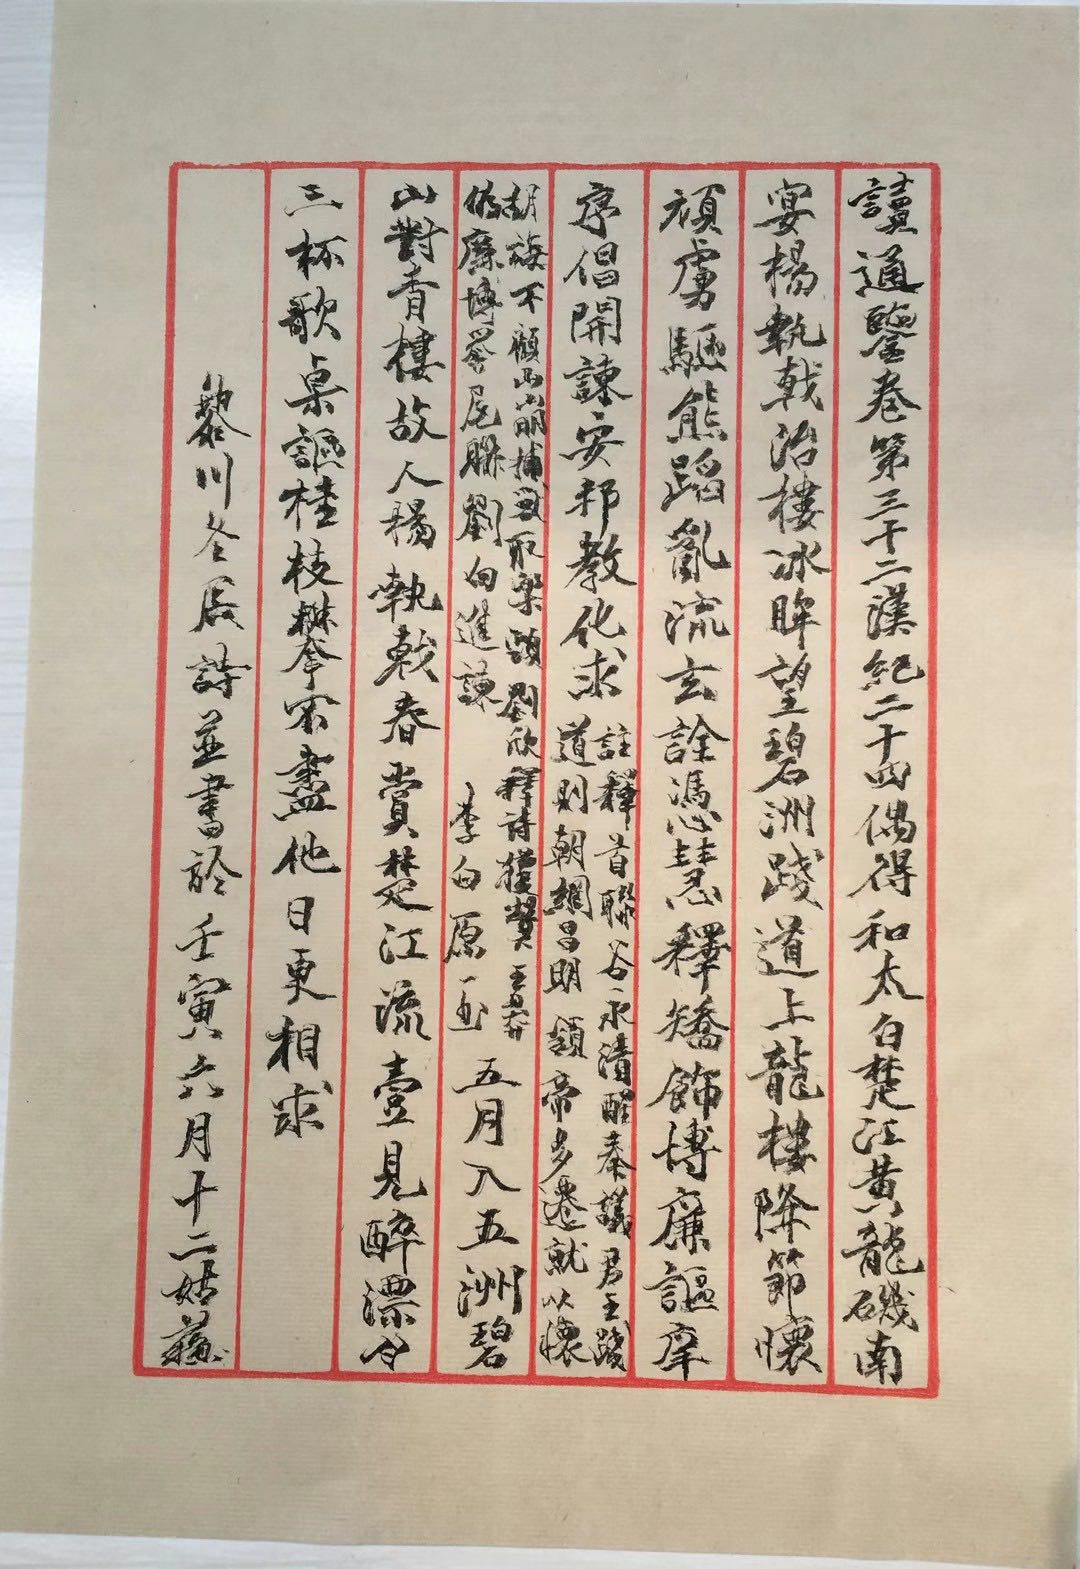 讀通鑒卷第三十二漢紀二十四偶得和太白楚江黄龍磯南
宴楊執戟治樓冰眸望碧洲踐道上龍樓降節懷
頑虜驅熊蹈亂流玄詮憑慧釋矯飾博廉謳庠
序倡開諫安邦教化求
註釋首聯谷永清醒奏議君主踐
道則朝綱昌明 頷帝多遷就以懷
胡誨不顧山崩捕獸取樂 頸劉欣釋詩獲贊 王莽
僞廉博譽尾聯劉向進諫
李白原玉 五月入五洲碧
山對青樓故人楊執戟春賞楚江流壹見醉漂今
三杯歌桌謳桂枝攀不盡他日更相求
黎川冬居詩並書於壬寅六月十二姑蘇